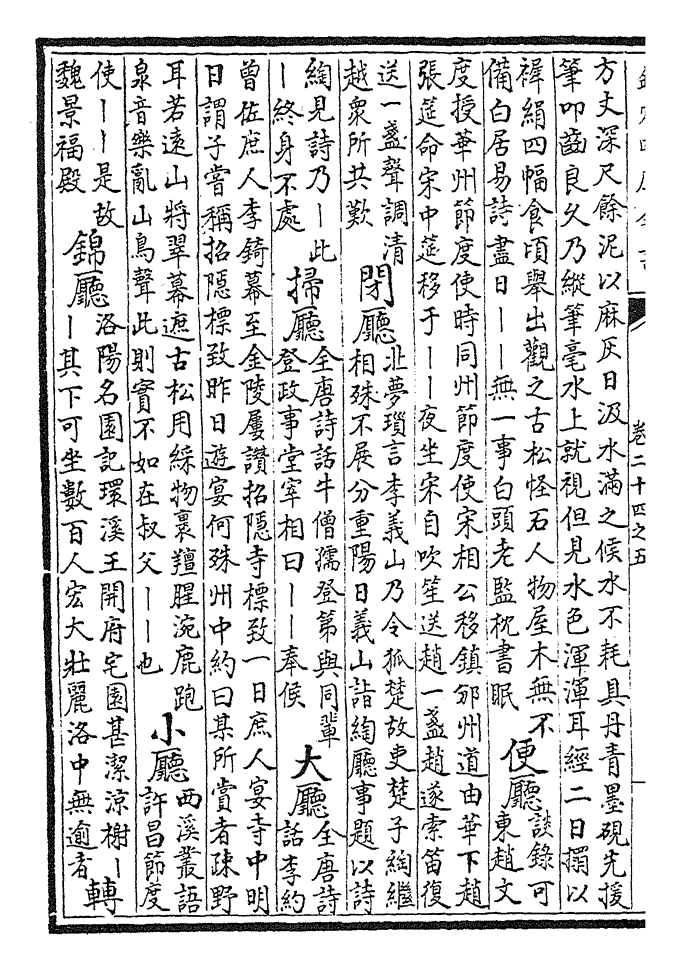 卷二十四之五
方丈深尺餘泥以麻灰日汲水滿之候水不耗具丹青墨硯先援
筆叩齒良久乃縱筆毫水上就視但見水色渾渾耳經二日搨以
褘絹四幅食頃舉出觀之古松怪石人物屋木無不
備白居易詩盡日丨丨無一事白頭老監枕書眠
便廳
談錄可
東趙文
度授華州節度使時同州節度使宋相公移鎮邠州道由華下趙
張筵命宋中筵移于丨丨夜坐宋自吹笙送趙一盞趙遂索笛復
送一盞聲調清
越衆所共歎
閉廳
北夢瑣言李義山乃令狐楚故吏楚子綯繼
相殊不展分重陽日義山詣綯廳事題以詩
綯見詩乃丨此
丨終身不處
掃廳
全唐詩話牛僧孺登第與同輩
登政事堂宰相曰丨丨奉候
大廳
全唐詩
話李約
曾佐庶人李錡幕至金陵屢讚招隱寺標致一日庶人宴寺中明
日謂子嘗稱招隱標致昨日遊宴何殊州中約曰某所賞者疎野
耳若遠山將翠幕遮古松用綵物裹羶腥涴鹿跑
泉音樂亂山鳥聲此則實不如在叔父丨丨也
小廳
西溪叢語
許昌節度
使丨丨是故
魏景福殿
錦廳
洛陽名園記環溪王開府宅園甚潔涼榭丨
丨其下可坐數百人宏大壯麗洛中無逾者
轉